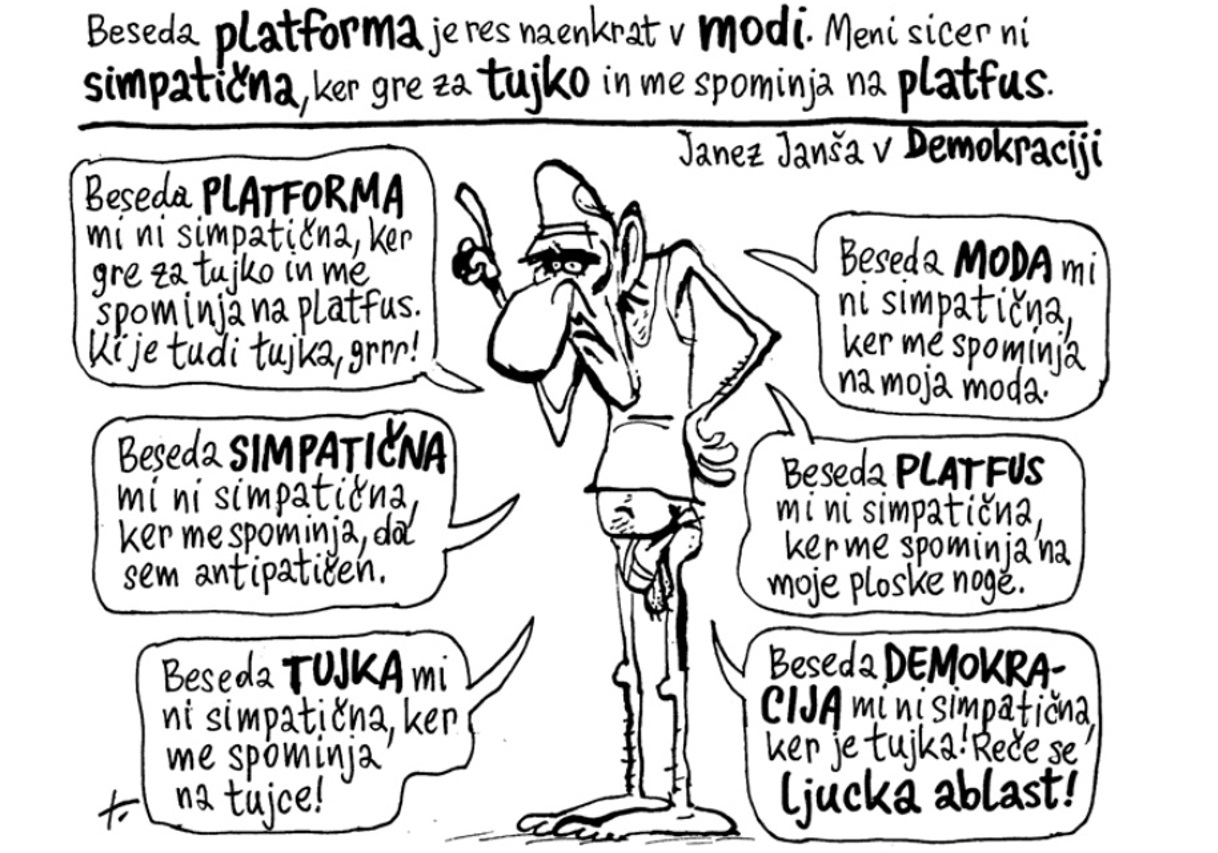 Beseda platforma je res naenkrat v modi. Meni sicer ni
simpatična, ker gre za tujko in me spominja na platfus.
Janez Janša v Demokraciji
Beseda PLATFORMA
mi ni simpatična, ker
gre za tujko in me
spominja na platfus.
Ki je tudi tujka, grrr!
Beseda MODA mi
ni simpatična,
ker me spominja
na moja moda.
Beseda SIMPATIČNA
mi ni simpatična,
ker me spominja, da
sem antipatičen.
Beseda PLATFUS
mi ni simpatična,
ker me spominja na
moje ploske noge.
Beseda TUJKA mi
ni simpatična, ker
me spominja
na tujce!
Beseda DEMOKRA-
CIJA mi ni simpatična,
ker je tujka! Reče se
ljucka ablast!